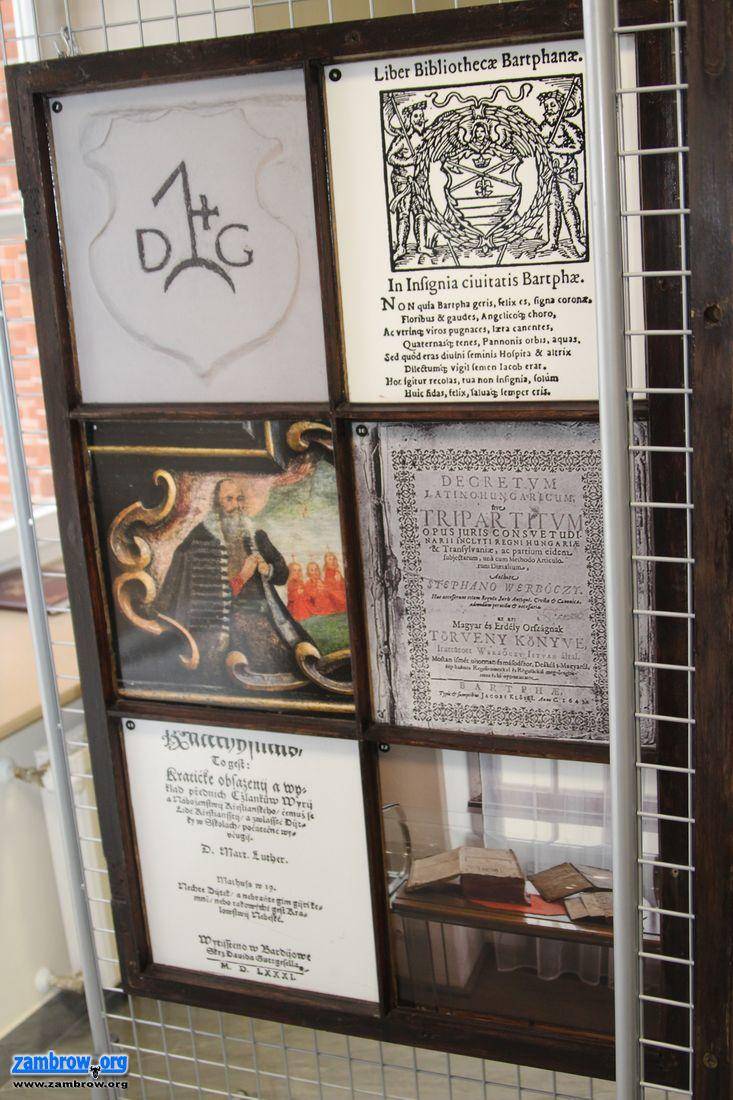 D G
9
Liber Bibliothecæ Bartphanæ.
In Insignia ciuitatis Bartphæ.
NON quia Bartpha geris, felix es, signa coronæ,
Floribus & gaudes, Angelicoq; choro,
Ac verinq; viros pugnaces, læta canentes,
Quaternasq; tenes, Pannonis orbis, aquas.
Sed quód eras diuini seminis Hospita & altrix
Dilectumq; vigil semen Iacob erat.
Hoc igitur recolas, tua non Insignia, solùm
Huic fidas, felix, saluaq; semper eris.
10
DECRETVM
LATINOHUNGARICUM,
sive
TRIPARTITVM
OPUS JURIS CONSVETUDI-
NARII INCLYTI REGNI HUNGARIÆ
& Transylvaniæ, ac partium eidem
subjectarum, unà cum Methodo Articulo-
rum Diætalium,
Authore
STEPHANO WERBÖCZY.
Magyar és Erdély Országnak
TÖRVENY KÖNYVE,
WERBÖCZY ISTVAN által,
BARTPHÆ,
11
Katechysmus,
To gest:
Kratičké obsaženij a wy-
klad předních Cžlánkůw Wyry
a Náboženstwij Křestianského, čemuž se
Lidé Křestiansstij, a zwlásstě Dijt-
ky w Sskolách, počátečně wy-
včugij.
D. Mart. Luther.
Mathaus w 19.
Nechte Dijtek, a nebraňte gim gijti ke-
mně, nebo takowých gest Kra-
lowstwij Nebeské.
Wytisstěno w Bardijowě
Skrz Dawida Guttgesella,
M. D. LXXXI.
12
zambrow.org
www.zambrow.org